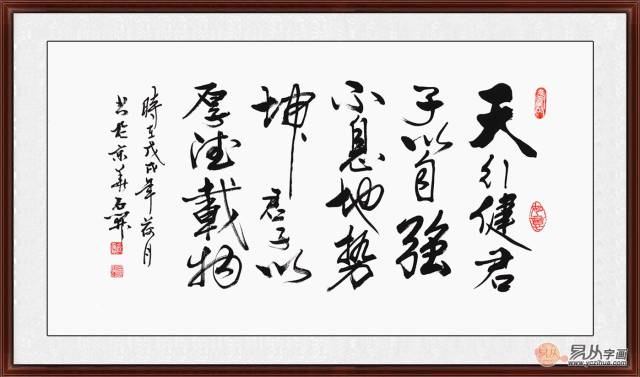 天行健君
子以自強
不息地势
坤君子以
厚德載物
時在戊戌年荷月
书於京華石開
易从字画
www.yczihua.com